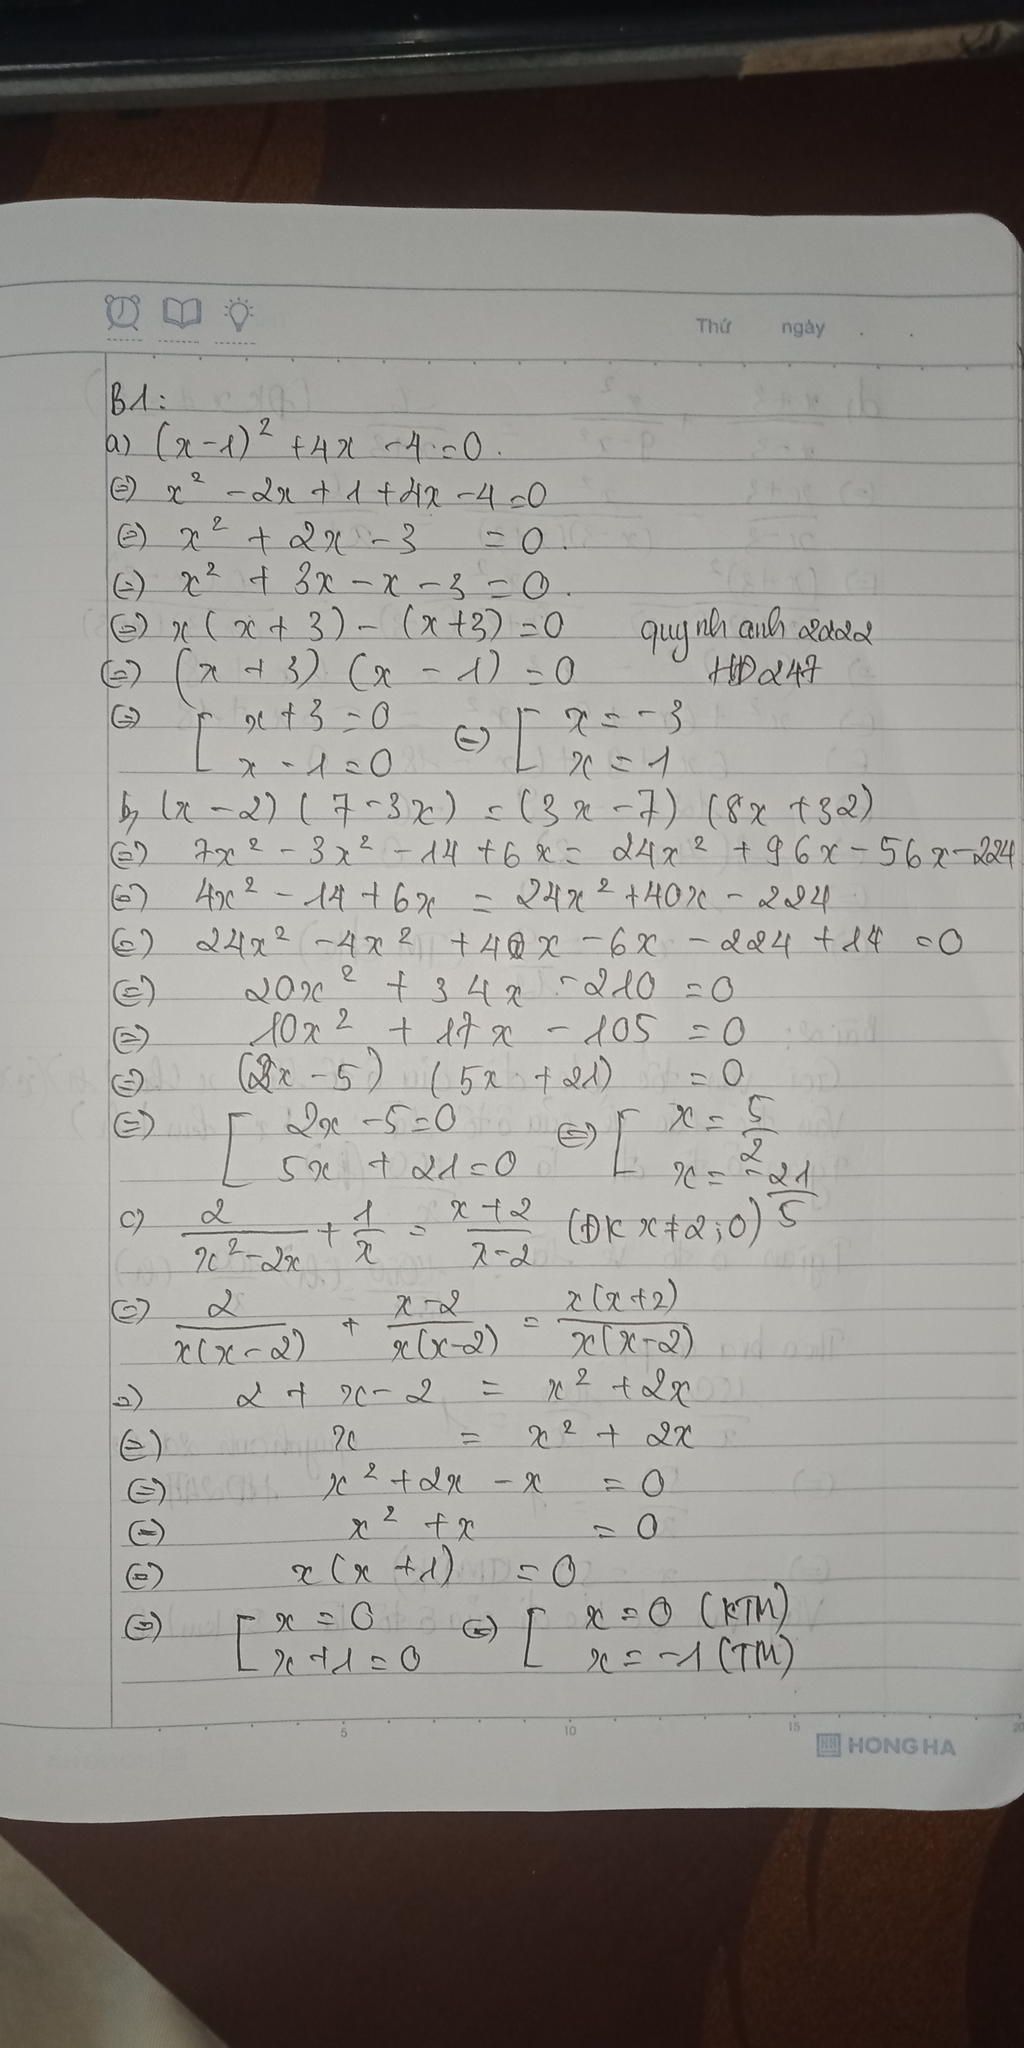 Thứ ngày . .
B1:
a) (x-1)² + 4x - 4 = 0.
(=) x² - 2x + 1 + 4x - 4 = 0
(=) x² + 2x - 3 = 0.
(=) x² + 3x - x - 3 = 0.
(=) x(x+3) - (x+3) = 0 quynh anh 2222
(=) (x+3) (x-1) = 0 HD247
(=) [ x+3 = 0 (=) [ x = -3
x - 1 = 0 x = 1
b, (x-2) (7-3x) = (3x-7) (8x+32)
(=) 7x² - 3x² - 14 + 6x = 24x² + 96x - 56x - 224
(=) 4x² - 14 + 6x = 24x² + 40x - 224
(=) 24x² - 4x² + 40x - 6x - 224 + 14 = 0
(=) 20x² + 34x - 210 = 0
(=) 10x² + 17x - 105 = 0
(=) (2x-5) (5x+21) = 0
(=) [ 2x - 5 = 0 (=) [ x = 5/2
5x + 21 = 0 x = -21/5
c) 2/(x²-2x) + 1/x = (x+2)/(x-2) (ĐK x≠2;0)
(=) 2/(x(x-2)) + (x-2)/(x(x-2)) = x(x+2)/(x(x-2))
=) 2 + x - 2 = x² + 2x
(=) x = x² + 2x
(=) x² + 2x - x = 0
(=) x² + x = 0
(=) x(x+1) = 0
(=) [ x = 0 (=) [ x = 0 (KTM)
x+1 = 0 x = -1 (TM)
5 10 15 20
HONG HA